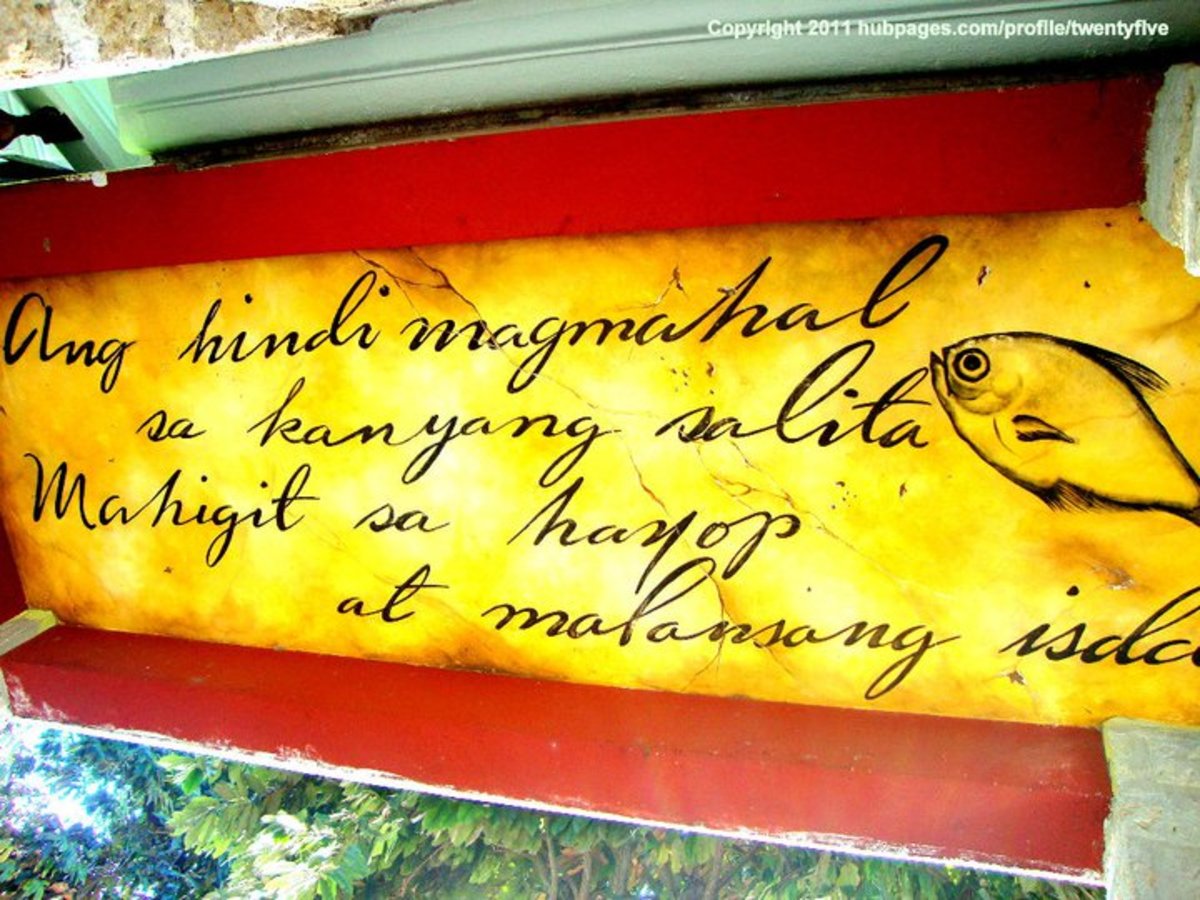 Copyright 2011 hubpages.com/profile/twentyfive
Ang hindi magmahal
sa kanyang salita
Mahigit sa hayop
at malansang isda